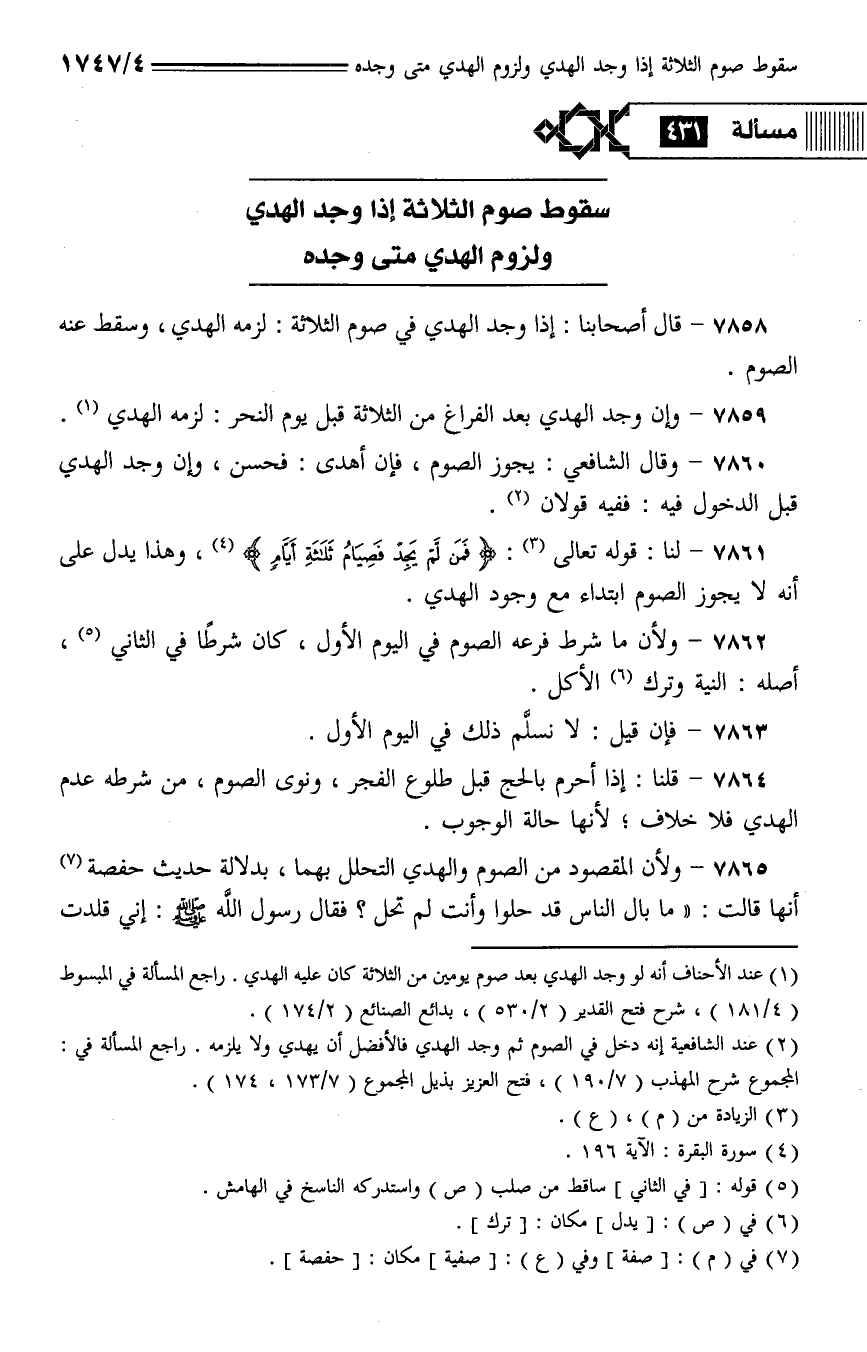 سقوط صوم الثلاثة إذا وجد الهدي ولزوم الهدي متى وجده ١٧٤٧/٤
مسألة ٤٣١
سقوط صوم الثلاثة إذا وجد الهدي
ولزوم الهدي متى وجده
٧٨٥٨ – قال أصحابنا : إذا وجد الهدي في صوم الثلاثة : لزمه الهدي ، وسقط عنه
الصوم .
٧٨٥٩ – وإن وجد الهدي بعد الفراغ من الثلاثة قبل يوم النحر : لزمه الهدي (١) .
٧٨٦٠ – وقال الشافعي : يجوز الصوم ، فإن أهدى : فحسن ، وإن وجد الهدي
قبل الدخول فيه : ففيه قولان (٢) .
٧٨٦١ – لنا : قوله تعالى (٣) : ﴿ فَمَن لَّمْ يَجِدْ فَصِيَامُ ثَلَاثَةِ أَيَّامٍ ﴾ (٤) ، وهذا يدل على
أنه لا يجوز الصوم ابتداء مع وجود الهدي .
٧٨٦٢ – ولأن ما شرط فرعه الصوم في اليوم الأول ، كان شرطًا في الثاني (٥) ،
أصله : النية وترك (٦) الأكل .
٧٨٦٣ – فإن قيل : لا نسلَّم ذلك في اليوم الأول .
٧٨٦٤ – قلنا : إذا أحرم بالحج قبل طلوع الفجر ، ونوى الصوم ، من شرطه عدم
الهدي فلا خلاف ؛ لأنها حالة الوجوب .
٧٨٦٥ – ولأن المقصود من الصوم والهدي التحلل بهما ، بدلالة حديث حفصة (٧)
أنها قالت : « ما بال الناس قد حلوا وأنت لم تحل ؟ فقال رسول اللَّه ﷺ : إني قلدت
(١) عند الأحناف أنه لو وجد الهدي بعد صوم يومين من الثلاثة كان عليه الهدي . راجع المسألة في المبسوط
( ١٨١/٤ ) ، شرح فتح القدير ( ٥٣٠/٢ ) ، بدائع الصنائع ( ١٧٤/٢ ) .
(٢) عند الشافعية إنه دخل في الصوم ثم وجد الهدي فالأفضل أن يهدي ولا يلزمه . راجع المسألة في :
المجموع شرح المهذب ( ١٩٠/٧ ) ، فتح العزيز بذيل المجموع ( ١٧٣/٧ ، ١٧٤ ) .
(٣) الزيادة من ( م ) ، ( ع ) .
(٤) سورة البقرة : الآية ١٩٦ .
(٥) قوله : [ في الثاني ] ساقط من صلب ( ص ) واستدركه الناسخ في الهامش .
(٦) في ( ص ) : [ يدل ] مكان : [ ترك ] .
(٧) في ( م ) : [ صفة ] وفي ( ع ) : [ صفية ] مكان : [ حفصة ] .